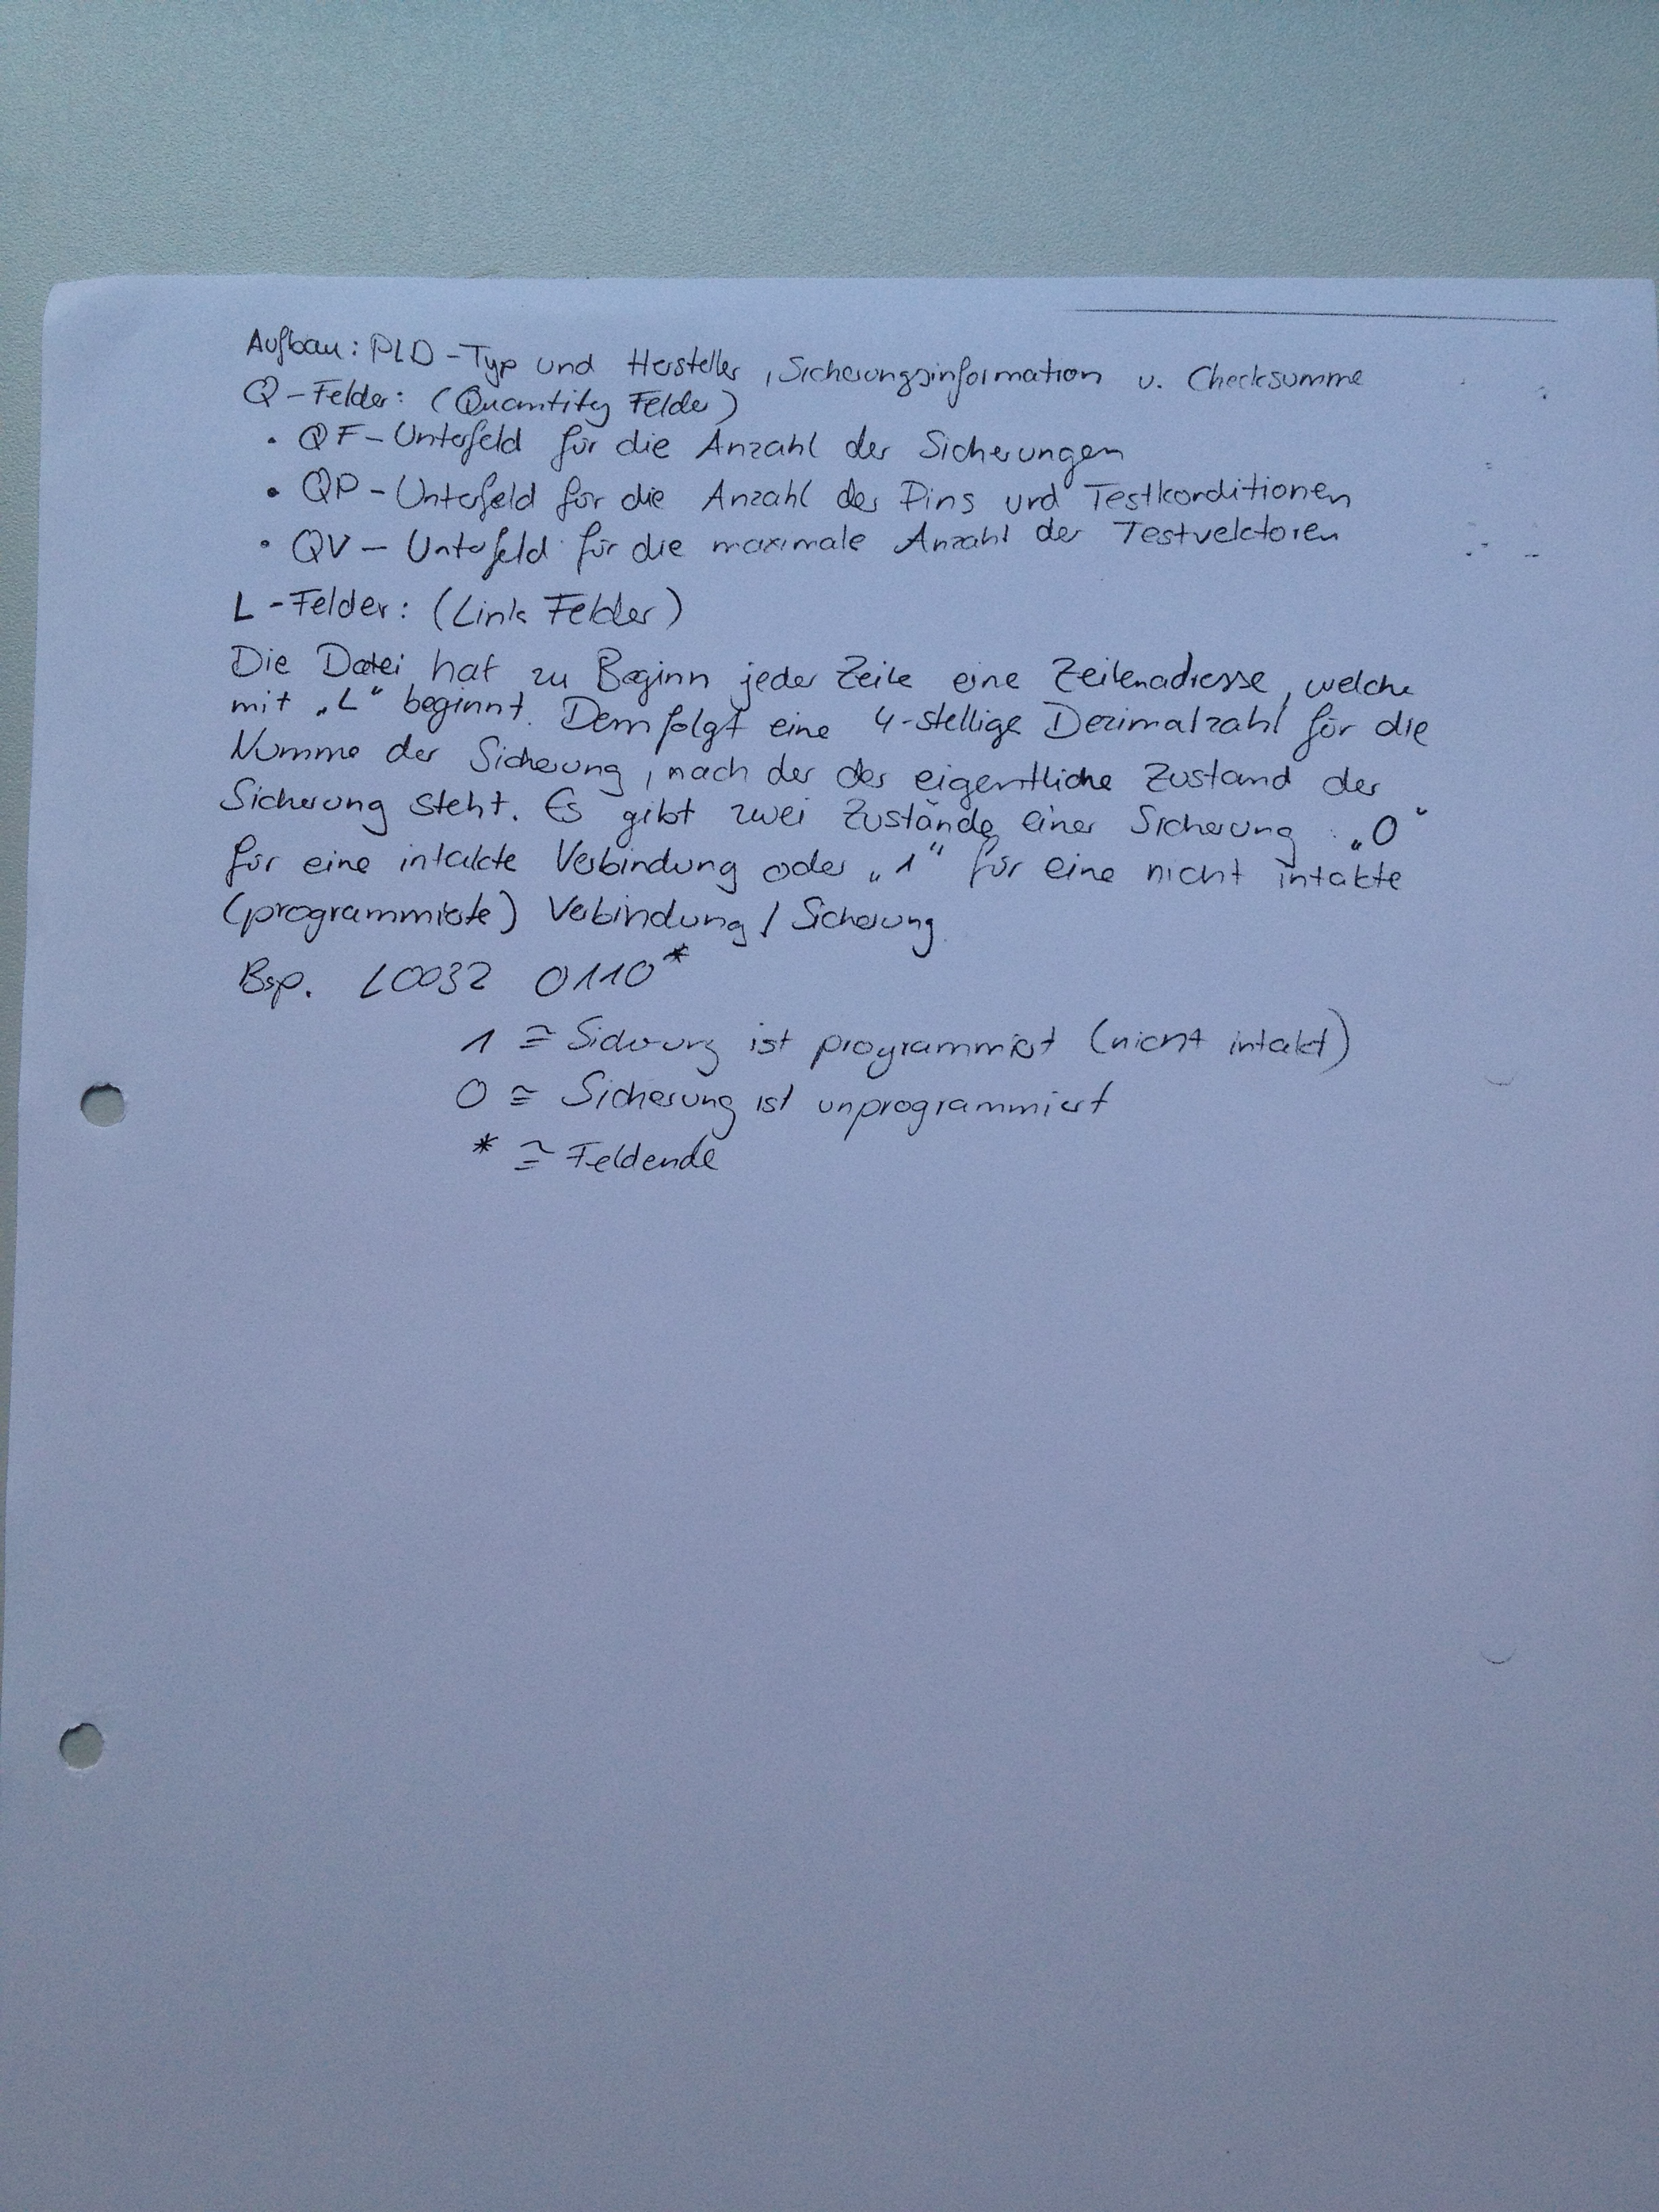 Aufbau: PLD-Typ und Hersteller, Sicherungsinformation u. Checksumme
Q-Felder: (Quantity Felder)
• QF-Unterfeld für die Anzahl der Sicherungen
• QP-Unterfeld für die Anzahl der Pins und Testkonditionen
• QV-Unterfeld für die maximale Anzahl der Testvektoren
L-Felder: (Link Felder)
Die Datei hat zu Beginn jeder Zeile eine Zeilenadresse, welche
mit „L“ beginnt. Dem folgt eine 4-stellige Dezimalzahl für die
Nummer der Sicherung, nach der der eigentliche Zustand der
Sicherung steht. Es gibt zwei Zustände einer Sicherung: „0“
für eine intakte Verbindung oder „1“ für eine nicht intakte
(programmierte) Verbindung / Sicherung.
Bsp. L0032 0110*
1 ≅ Sicherung ist programmiert (nicht intakt)
0 ≅ Sicherung ist unprogrammiert
* ≅ Feldende